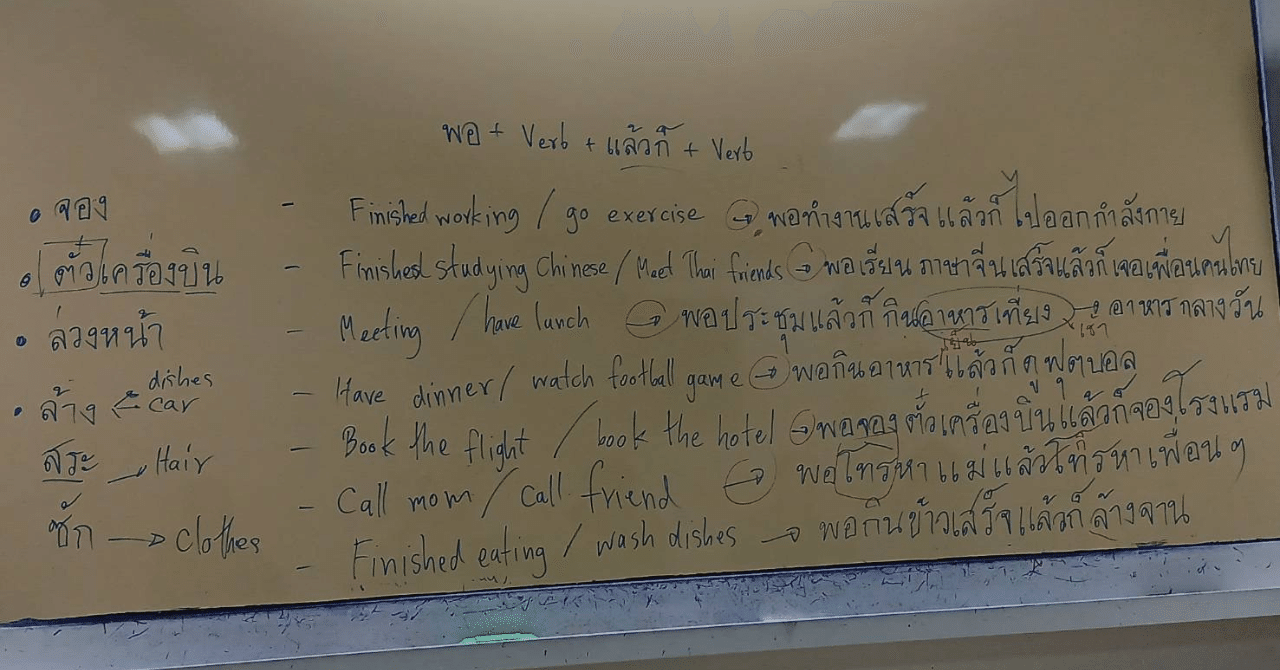 พอ + Verb + แล้วก็ + Verb
• จอง
• ตั๋วเครื่องบิน
• ล่วงหน้า
• ล้าง ← dishes
car
สระ → Hair
ซัก → clothes
- Finished working / go exercise → พอทำงานเสร็จแล้วก็ไปออกกำลังกาย
- Finished studying Chinese / Meet Thai friends → พอเรียนภาษาจีนเสร็จแล้วก็เจอเพื่อนคนไทย
- Meeting / have lunch → พอประชุมแล้วก็กินอาหารเที่ยง → อาหารกลางวัน
เช้า
เย็น
- Have dinner / watch football game → พอกินอาหารแล้วก็ดูฟุตบอล
- Book the flight / book the hotel → พอจองตั๋วเครื่องบินแล้วก็จองโรงแรม
- Call mom / call friend → พอโทรหาแม่แล้วก็โทรหาเพื่อนๆ
- Finished eating / wash dishes → พอกินข้าวเสร็จแล้วก็ล้างจาน